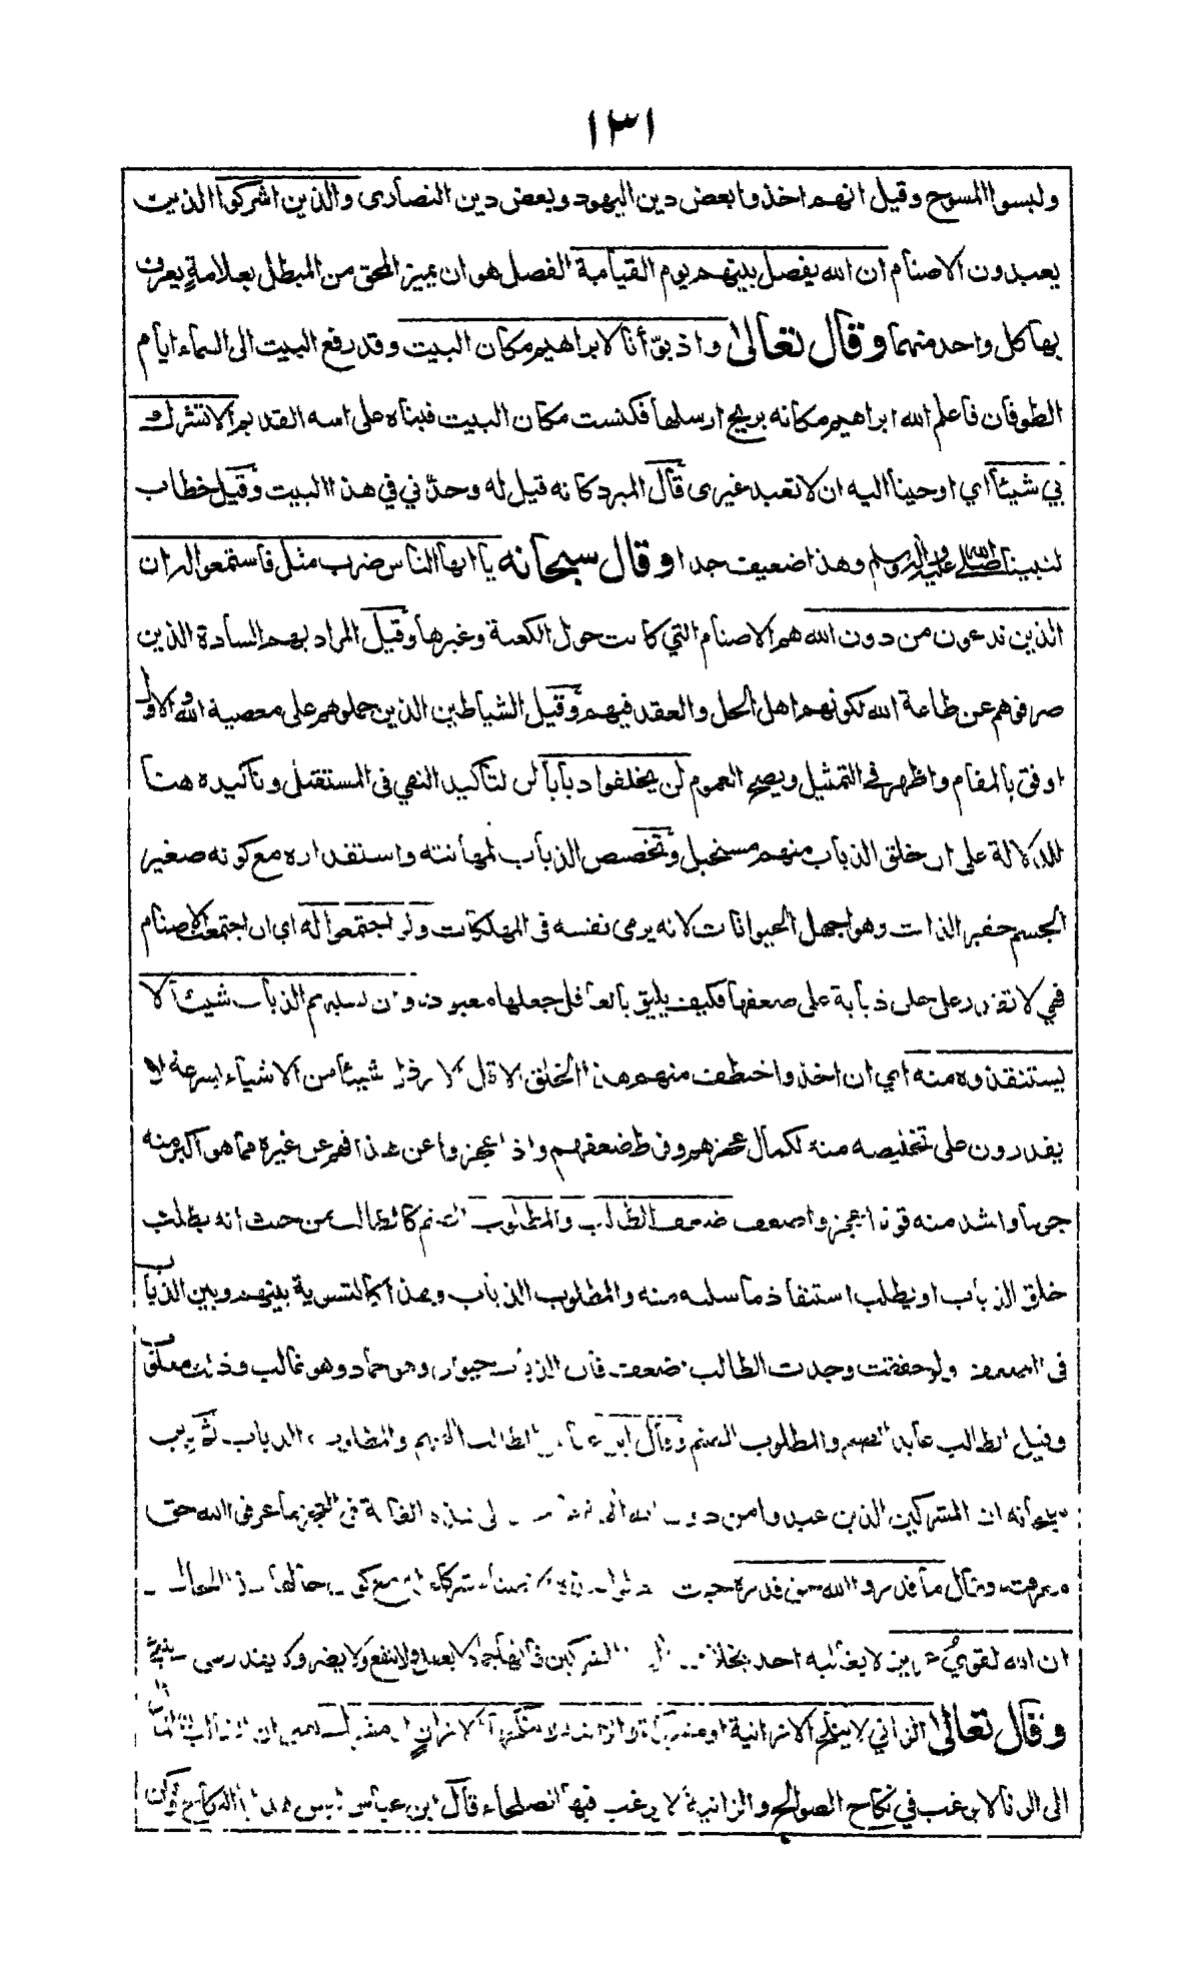 ١٣١
ولبسوا المسوح وقيل انهم اخذوا بعض دين اليهود وبعض دين النصارى والذين اشركوا الذين
يعبدون الاصنام ان الله يفصل بينهم يوم القيامة الفصل هو ان يميز المحق من المبطل بعلامة يعرف
بها كل واحد منهما وقال تعالى واذ بوأنا لابراهيم مكان البيت وقد رفع البيت الى السماء ايام
الطوفان فاعلم الله ابراهيم مكانه بريح ارسلها فكنست مكان البيت فبناه على اسه القديم الا تشرك
بي شيئا اي اوحينا اليه ان لا تعبد غيرى قال المبرد كانه قيل له وحدني في هذا البيت وقيل خطاب
لنبينا صلى الله عليه وآله وسلم وهذا ضعيف جدا وقال سبحانه يا ايها الناس ضرب مثل فاستمعوا له ان
الذين تدعون من دون الله هم الاصنام التي كانت حول الكعبة وغيرها وقيل المراد بهم السادة الذين
صرفوهم عن طاعة الله لكونهم اهل الحل والعقد فيهم وقيل الشياطين الذين حملوهم على معصية الله والاول
اوفق بالمقام واظهر في التمثيل ويصح العموم لن يخلقوا ذبابا لن لتاكيد النفي في المستقبل وتأكيده هنا
للدلالة على ان خلق الذباب منهم مستحيل وتخصص الذباب لمهانته واستقذاره مع كونه صغير
الجسم حقير الذات وهو اجهل الحيوانات لانه يرمى نفسه في المهلكات ولو اجتمعوا له اي ان اجتمعت الاصنام
فهي لا تقدر على خلق ذبابة على ضعفها فكيف يليق بالعاقل جعلها معبودة وان يسلبهم الذباب شيئا لا
يستنقذوه منه اي ان اخذ واختطف منهم هذا الخلق الاقل الارذل شيئا من الاشياء بسرعة لا
يقدرون على تخليصه منه لكمال عجزهم وفرط ضعفهم واذا عجزوا عن هذا فهم عن غيره مما هو اكبر منه
جرما واشد منه قوة اعجز واضعف ضعف الطالب والمطلوب الصنم كالطالب من حيث انه يطلب
خلق الذباب او يطلب استنقاذ ما سلبه منه والمطلوب الذباب وهذا كالتسوية بينهم وبين الذباب
في الضعف ولو حققت وجدت الطالب اضعف فان الذباب حيوان وهو جماد وهو غالب وذلك مغلوب
وقيل الطالب عابد الصنم والمطلوب الصنم وقال ابن الطالب والمطلوب الذباب ثم بين
سبحانه ان المشركين الذين عبدوا من دون الله الى هذه الغاية في العجز ما عرفوا الله حق
معرفته وقال ما قدروا الله حق قدره حيث شركاء له مع كون حالها
ان الله لقوي عزيز لا يغالبه احد بخلاف المشركين فانها جماد لا تعقل ولا تنفع ولا تضر ولا يقدر على
وقال تعالى الزاني لا ينكح الا زانية او مشركة والزانية لا ينكحها الا زان او مشرك
الى الزنا لا يرغب في نكاح الصوالح والزانية لا يرغب فيها الصلحاء قال ابن عباس ليس هذا بالنكاح